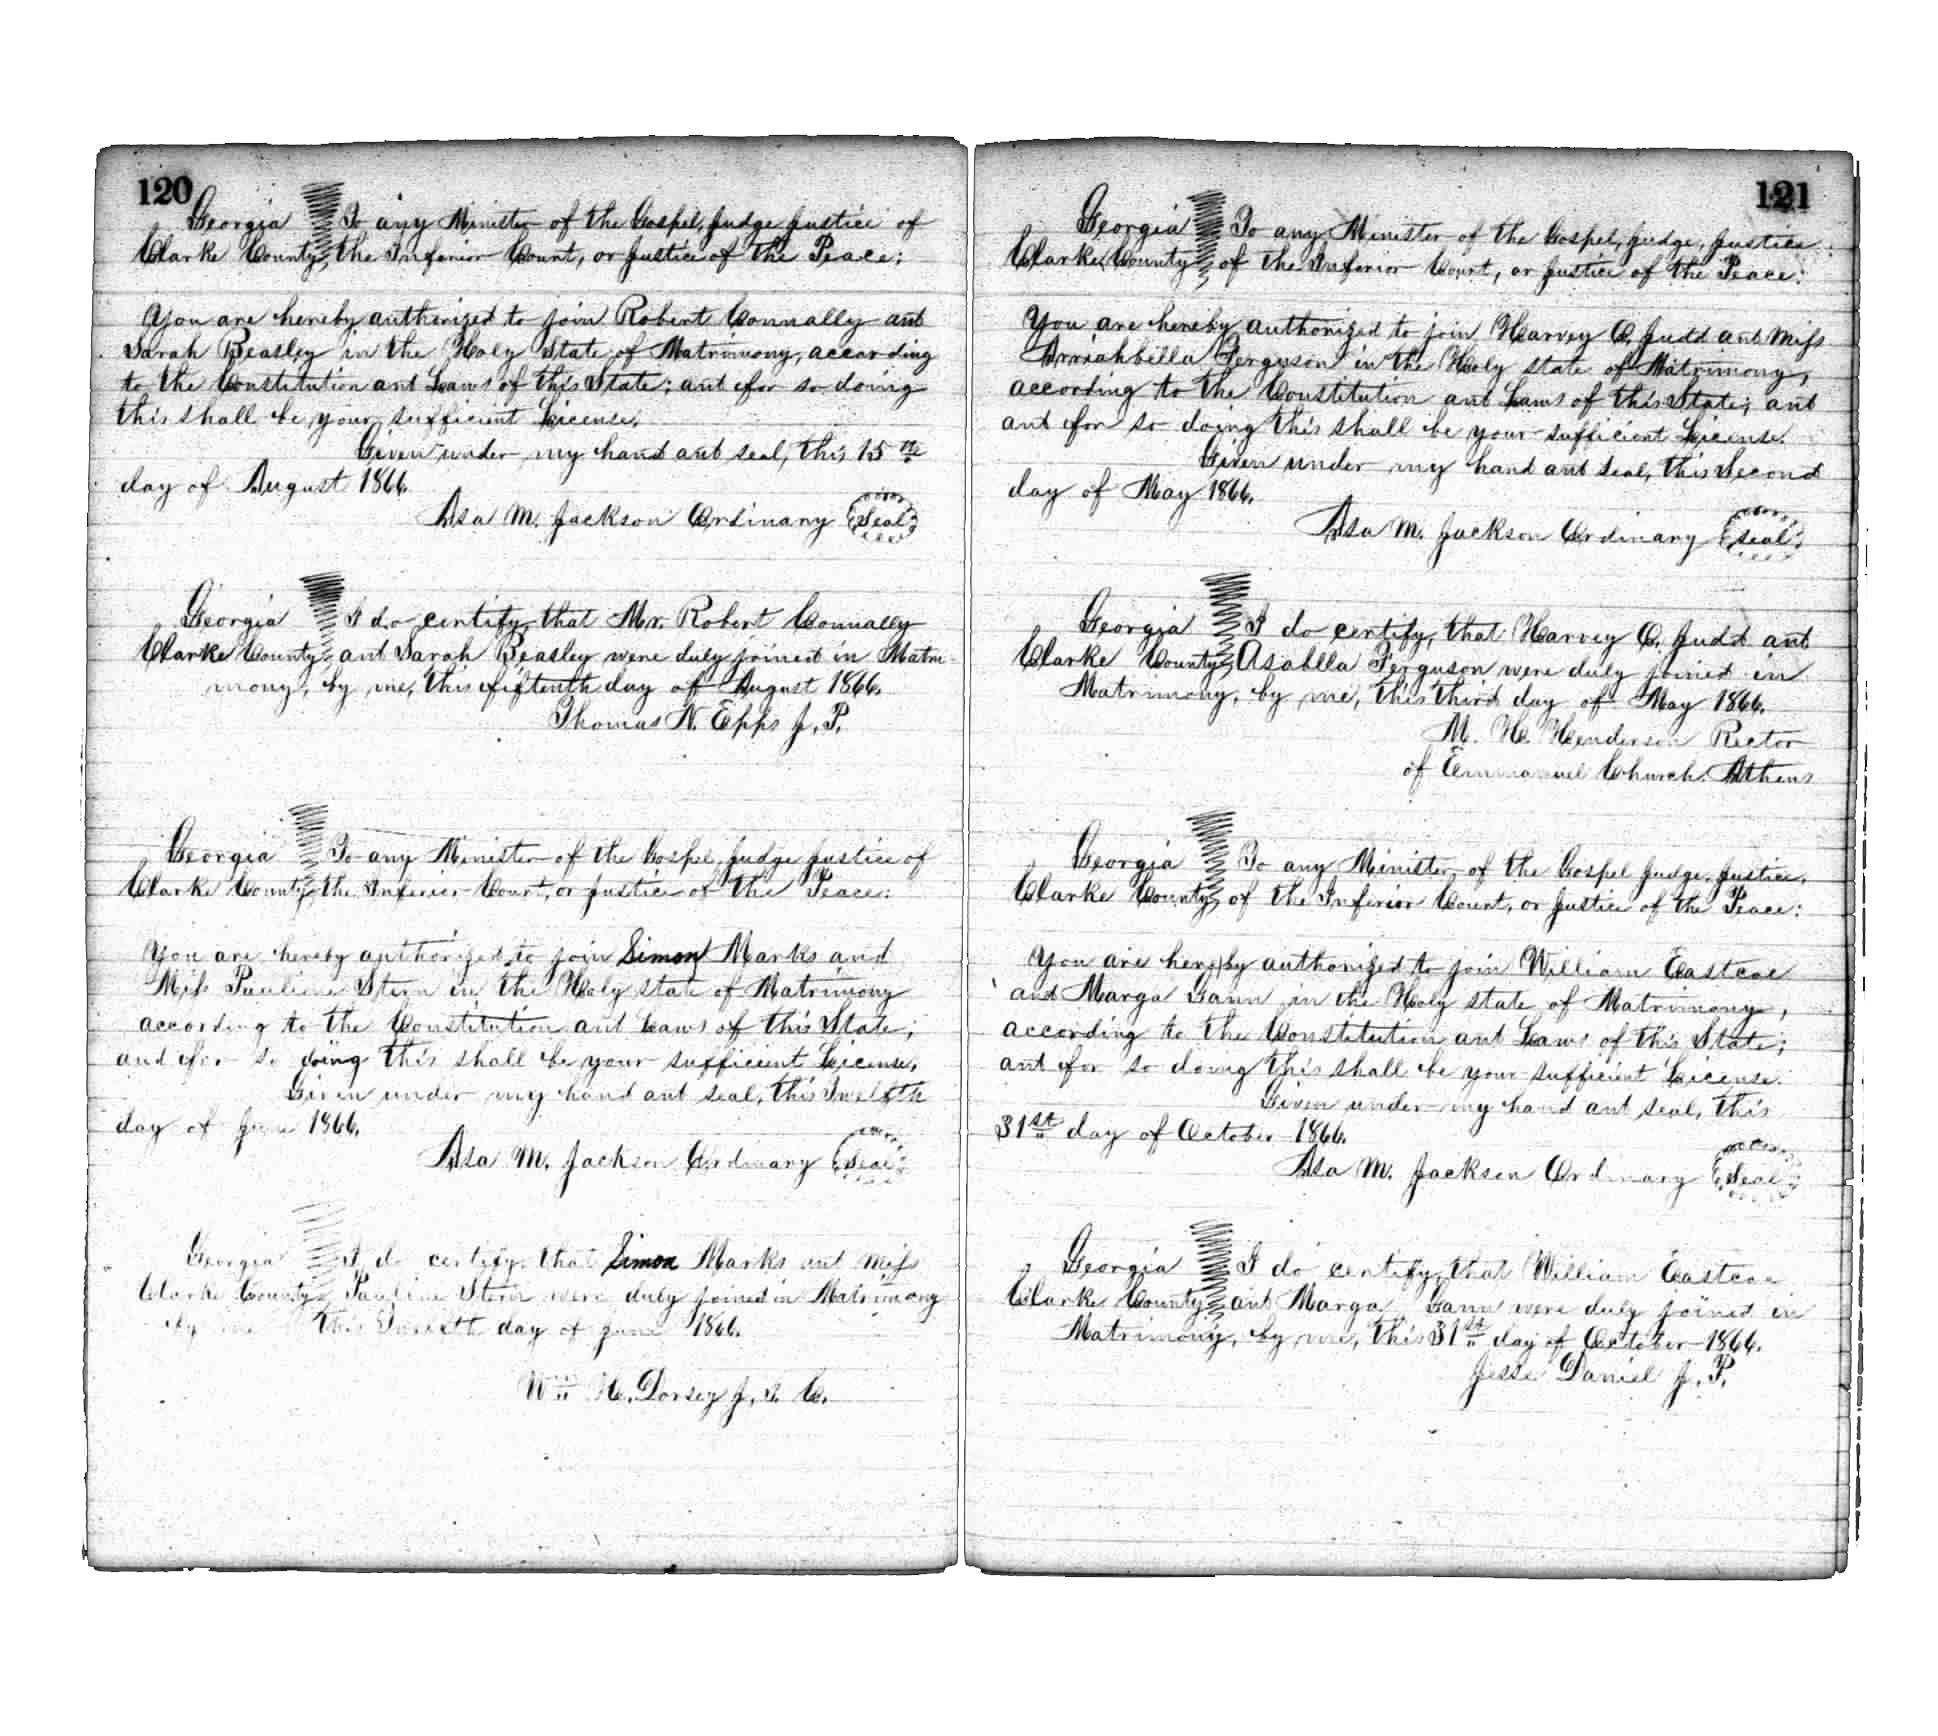 120
Georgia To any Minister of the Gospel, Judge Justice of
Clarke County, the Inferior Court, or Justice of the Peace:
You are hereby authorized to join Robert Connally and
Sarah Beasley in the Holy State of Matrimony, according
to the Constitution and Laws of this State; and for so doing
this shall be your sufficient License.
Given under my hand and seal, this 15th
day of August 1866.
Asa M. Jackson Ordinary Seal
Georgia I do certify that Mr. Robert Connally
Clarke County and Sarah Beasley were duly joined in Matri-
mony, by me, this fifteenth day of August 1866.
Thomas N. Epps J. P.
Georgia To any Minister of the Gospel, Judge Justice of
Clarke County the Inferior Court, or Justice of the Peace:
You are hereby authorized to join Simon Marks and
Miss Pauline Stern in the Holy state of Matrimony
according to the Constitution and Laws of this State;
and for so doing this shall be your sufficient License.
Given under my hand and seal, this Twelfth
day of June 1866.
Asa M. Jackson Ordinary Seal
Georgia I do certify that Simon Marks and Miss
Clarke County Pauline Stern were duly joined in Matrimony
by me this Twelfth day of June 1866.
Wm H. Dorsey J. I. C.
121
Georgia To any Minister of the Gospel, Judge, Justice
Clarke County of the Inferior Court, or Justice of the Peace:
You are hereby authorized to join Harvey C. Judd and Miss
Arriahbella Ferguson in the Holy state of Matrimony,
according to the Constitution and Laws of this State; and
and for so doing this shall be your sufficient License.
Given under my hand and seal, this Second
day of May 1866.
Asa M. Jackson Ordinary Seal
Georgia I do certify, that Harvey C. Judd and
Clarke County Asablla Ferguson were duly joined in
Matrimony, by me, this third day of May 1866.
M. H. Henderson Rector
of Emmanuel Church Athens
Georgia To any Minister of the Gospel Judge, Justice,
Clarke County, of the Inferior Court, or Justice of the Peace:
You are hereby authorized to join William Eastcoe
and Marga Gann in the Holy state of Matrimony,
according to the Constitution and Laws of this State;
and for so doing this shall be your sufficient License.
Given under my hand and seal, this
31st day of October 1866.
Asa M. Jackson Ordinary Seal
Georgia I do certify, that William Eastcoe
Clarke County and Marga Gann were duly joined in
Matrimony, by me, this 31st day of October 1866.
Jesse Daniel J. P.